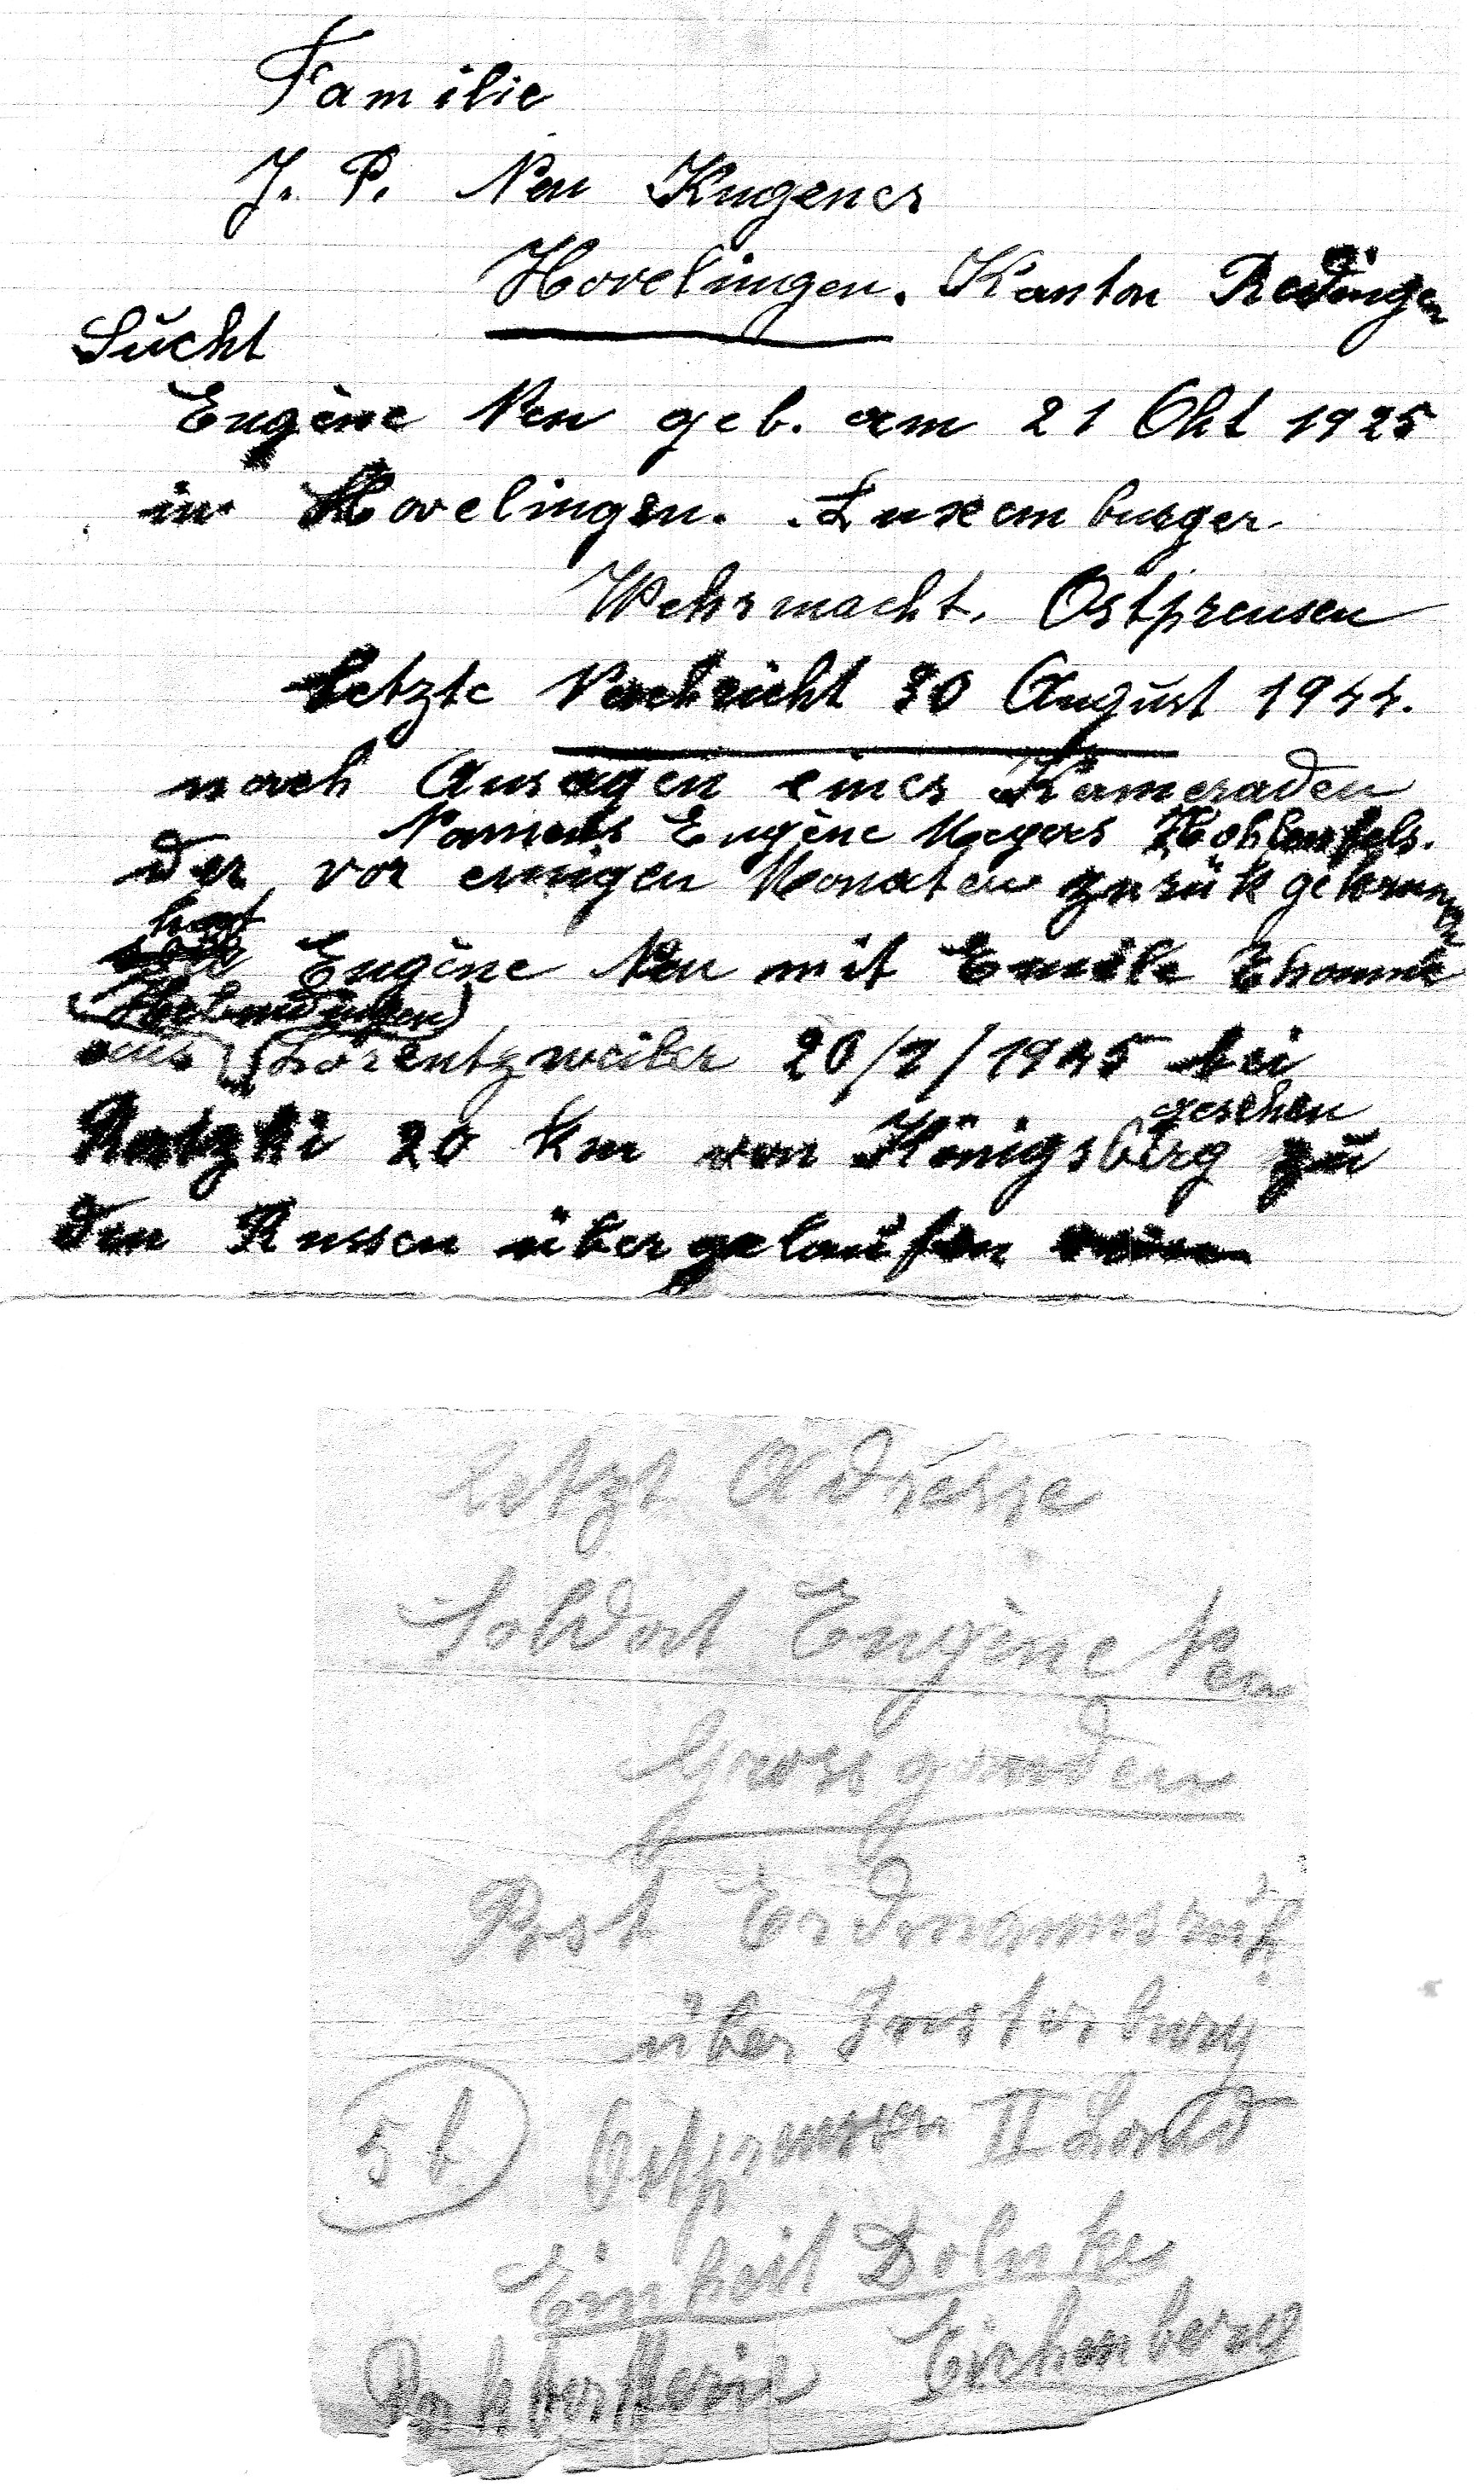 Familie
J. P. Neu Kugener
Hovelingen. Kanton Redingen
Sucht
Eugène Neu geb. am 21 Okt 1925
in Hovelingen. Luxemburger
Wehrmacht. Ostpreusen
letzte Nachricht 30 August 1944.
nach Ausagen eines Kameraden
Namens Eugène Meyers Hohlenfels.
der vor einigen Monaten zurük gekommen
hat
Eugène Neu mit Emile
aus Lorentzweiler 20/1/1945 bei
gesehen
20 km von Königsberg zu
den Russen übergelaufen
letzt Adresse
Soldat Eugène Neu
Post Erdmannsruh
über Insterburg
5 b Ostpreussen II Land
Einheit
Eichenberg